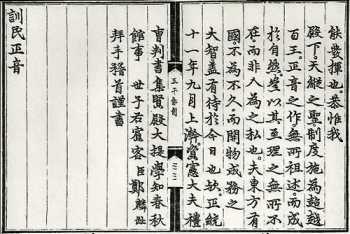 能發揮也。恭惟我
殿下。天縱之聖。制度施為超越
百王。正音之作。無所祖述。而成
於自然。豈以其至理之無所不
在。而非人為之私也。夫東方有
國。不為不久。而開物成務之
大智。盖有待於今日也欤。正統
十一年九月上澣。資憲大夫禮
曹判書集賢殿大提學知春秋
館事 世子右賓客臣鄭麟趾
拜手稽首謹書
訓民正音